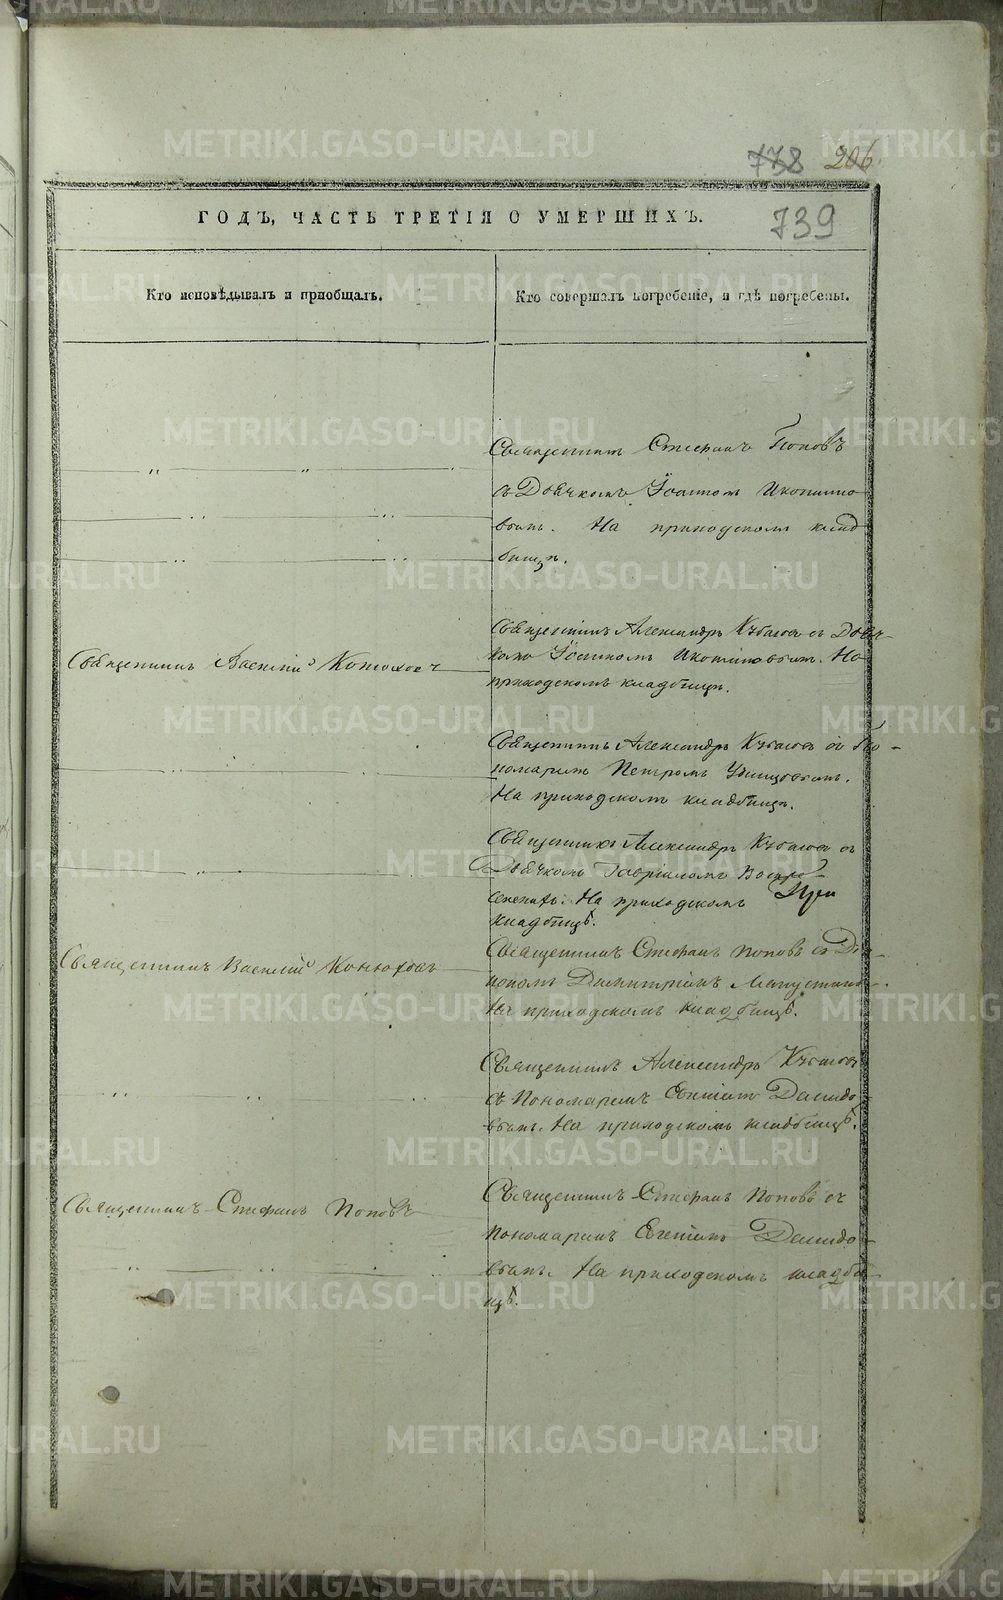 778 206
ГОДЪ, ЧАСТЬ ТРЕТІЯ О УМЕРШИХЪ. 739
Кто исповѣдывалъ и пріобщалъ.
Кто совершалъ погребеніе, и гдѣ погребены.
Священникъ Стефанъ Поповъ
съ Дьячкомъ Іоанномъ
На приходскомъ клад
бищѣ.
Священникъ Василій Конюховъ
Священникъ Александръ съ Дьяч-
комъ Іоанномъ На
приходскомъ кладбищѣ.
Священникъ Александръ съ По-
номаремъ Петромъ
На приходскомъ кладбищѣ.
Священникъ Александръ съ
Дьячкомъ Гавріиломъ
На приходскомъ
кладбищѣ.
Священникъ Василій Конюховъ
Священникъ Стефанъ Поповъ съ Діа-
кономъ Димитріемъ
На приходскомъ кладбищѣ.
Священникъ Александръ
съ Пономаремъ Евгеніемъ Давидо-
вымъ. На приходскомъ кладбищѣ.
Священникъ Стефанъ Поповъ
Священникъ Стефанъ Поповъ съ
пономаремъ Евгеніемъ Давидо-
вымъ. На приходскомъ кладби-
щѣ.
METRIKI.GASO-URAL.RU